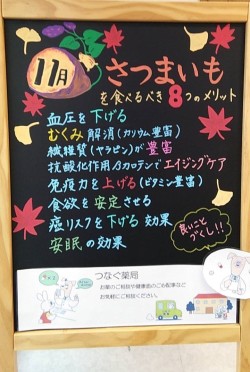 11月
さつまいも
を食べるべき8つのメリット
血圧を下げる
むくみ解消(カリウム豊富)
繊維質(ヤラピン)が豊富
抗酸化作用βカロテンでエイジングケア
免疫力を上げる(ビタミン豊富)
食欲を安定させる
癌リスクを下げる効果
安眠の効果
良いこと
づくし!!
つなぐ薬局
お薬のご相談や健康面のご心配事など
お気軽にご相談ください。